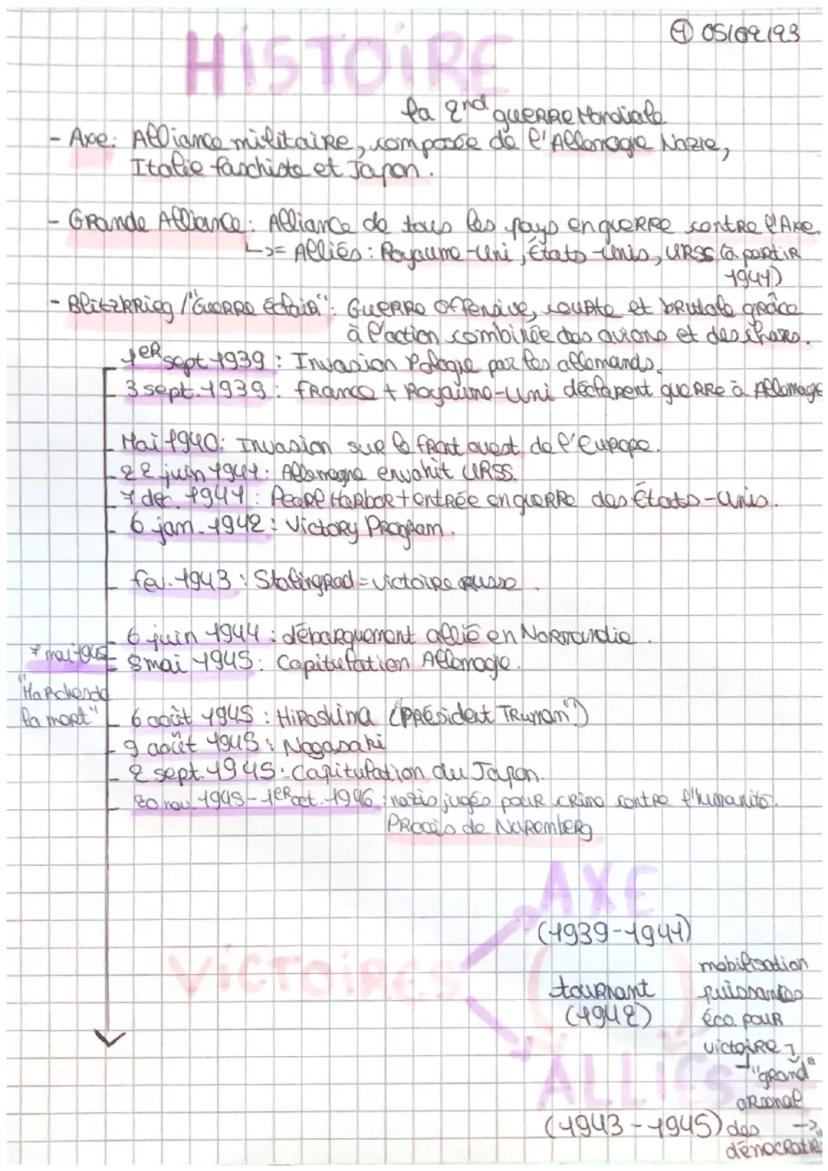 ① 05/09/23
HISTOIRE
la 2nd guerre Mondiale
- Axe: Alliance militaire, composée de l'Allemagne Nazie,
Italie faschiste et Japon.
- Grande Alliance: Alliance de tous les pays en guerre contre l'Axe.
↳ = Alliés: Royaume-Uni, États-Unis, URSS (à partir
1941)
- Blitzkrieg / "Guerre éclair": Guerre offensive, courte et brutale grâce
à l'action combinée des avions et des chars.
1er sept 1939: Invasion Pologne par les allemands.
3 sept. 1939: France + Royaume-Uni déclarent guerre à Allemagne
Mai 1940: Invasion sur le front ouest de l'Europe.
22 juin 1941: Allemagne envahit URSS.
7 déc. 1941: Pearl Harbor + entrée en guerre des États-Unis.
6 jan. 1942: Victory Program.
fév. 1943: Stalingrad = victoire russe.
6 juin 1944: débarquement allié en Normandie.
7 mai 1945
8 mai 1945: Capitulation Allemagne.
"Marches de
la mort"
6 août 1945: Hiroshima (président Truman)
9 août 1945: Nagasaki
2 sept. 1945: Capitulation du Japon.
20 nov. 1945 - 1er oct. 1946: nazis jugés pour crime contre l'humanité.
Procès de Nuremberg
AXE
(1939-1941)
VICTOIRES
tournant
(1942)
mobilisation
puissantes
éco. pour
victoire
→ "grand"
arsenal
des →
démocratie"
ALLIÉS
(1943-1945)